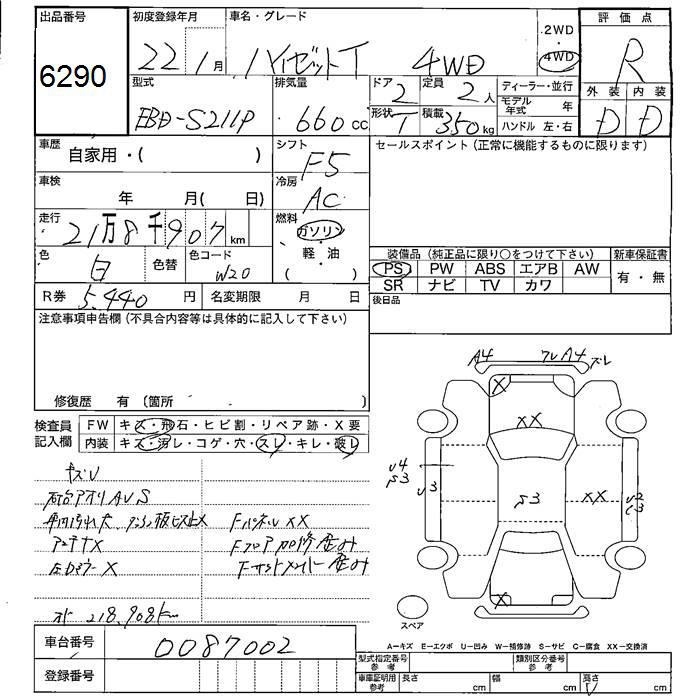 出品番号 初度登録年月 車名・グレード 2WD 評価点
6290 22 1月 ハイゼットT 4WD 4WD R
型式 排気量 ドア 定員 ディーラー・並行 外装 内装
EBD-S211P 660cc 2 2人 モデル年式 年 D D
形状 T 積載 350kg ハンドル 左・右
車歴 自家用・( ) シフト F5 セールスポイント(正常に機能するものに限ります)
車検 年 月( 日) 冷房 AC
走行 21万8千907km 燃料 ガソリン
色 白 色替 色コード W20 軽・油 ( )
装備品(純正品に限り○をつけて下さい) 新車保証書
PS PW ABS エアB AW 有・無
SR ナビ TV カワ
R券 5,440円 名変期限 月 日 後日品
注意事項申告欄(不具合内容等は具体的に記入して下さい)
修復歴 有(箇所 )
検査員記入欄 FW キズ・飛石・ヒビ割・リペア跡・X要
内装 キズ・汚レ・コゲ・穴・スレ・キレ・破レ
A4 フレA4 ズレ
X XX
U4 S3 U3 S3 XX U2 C3
X
スペア
Fパネル XX
アンテナX
左Dミラー X
218,908km
A=キズ E=エクボ U=凹み W=補修跡 S=サビ C=腐食 XX=交換済
車台番号 0087002
登録番号
型式指定番号 参考 類別区分番号 参考
車庫証明用 参考 長さ cm 幅 cm 高さ cm